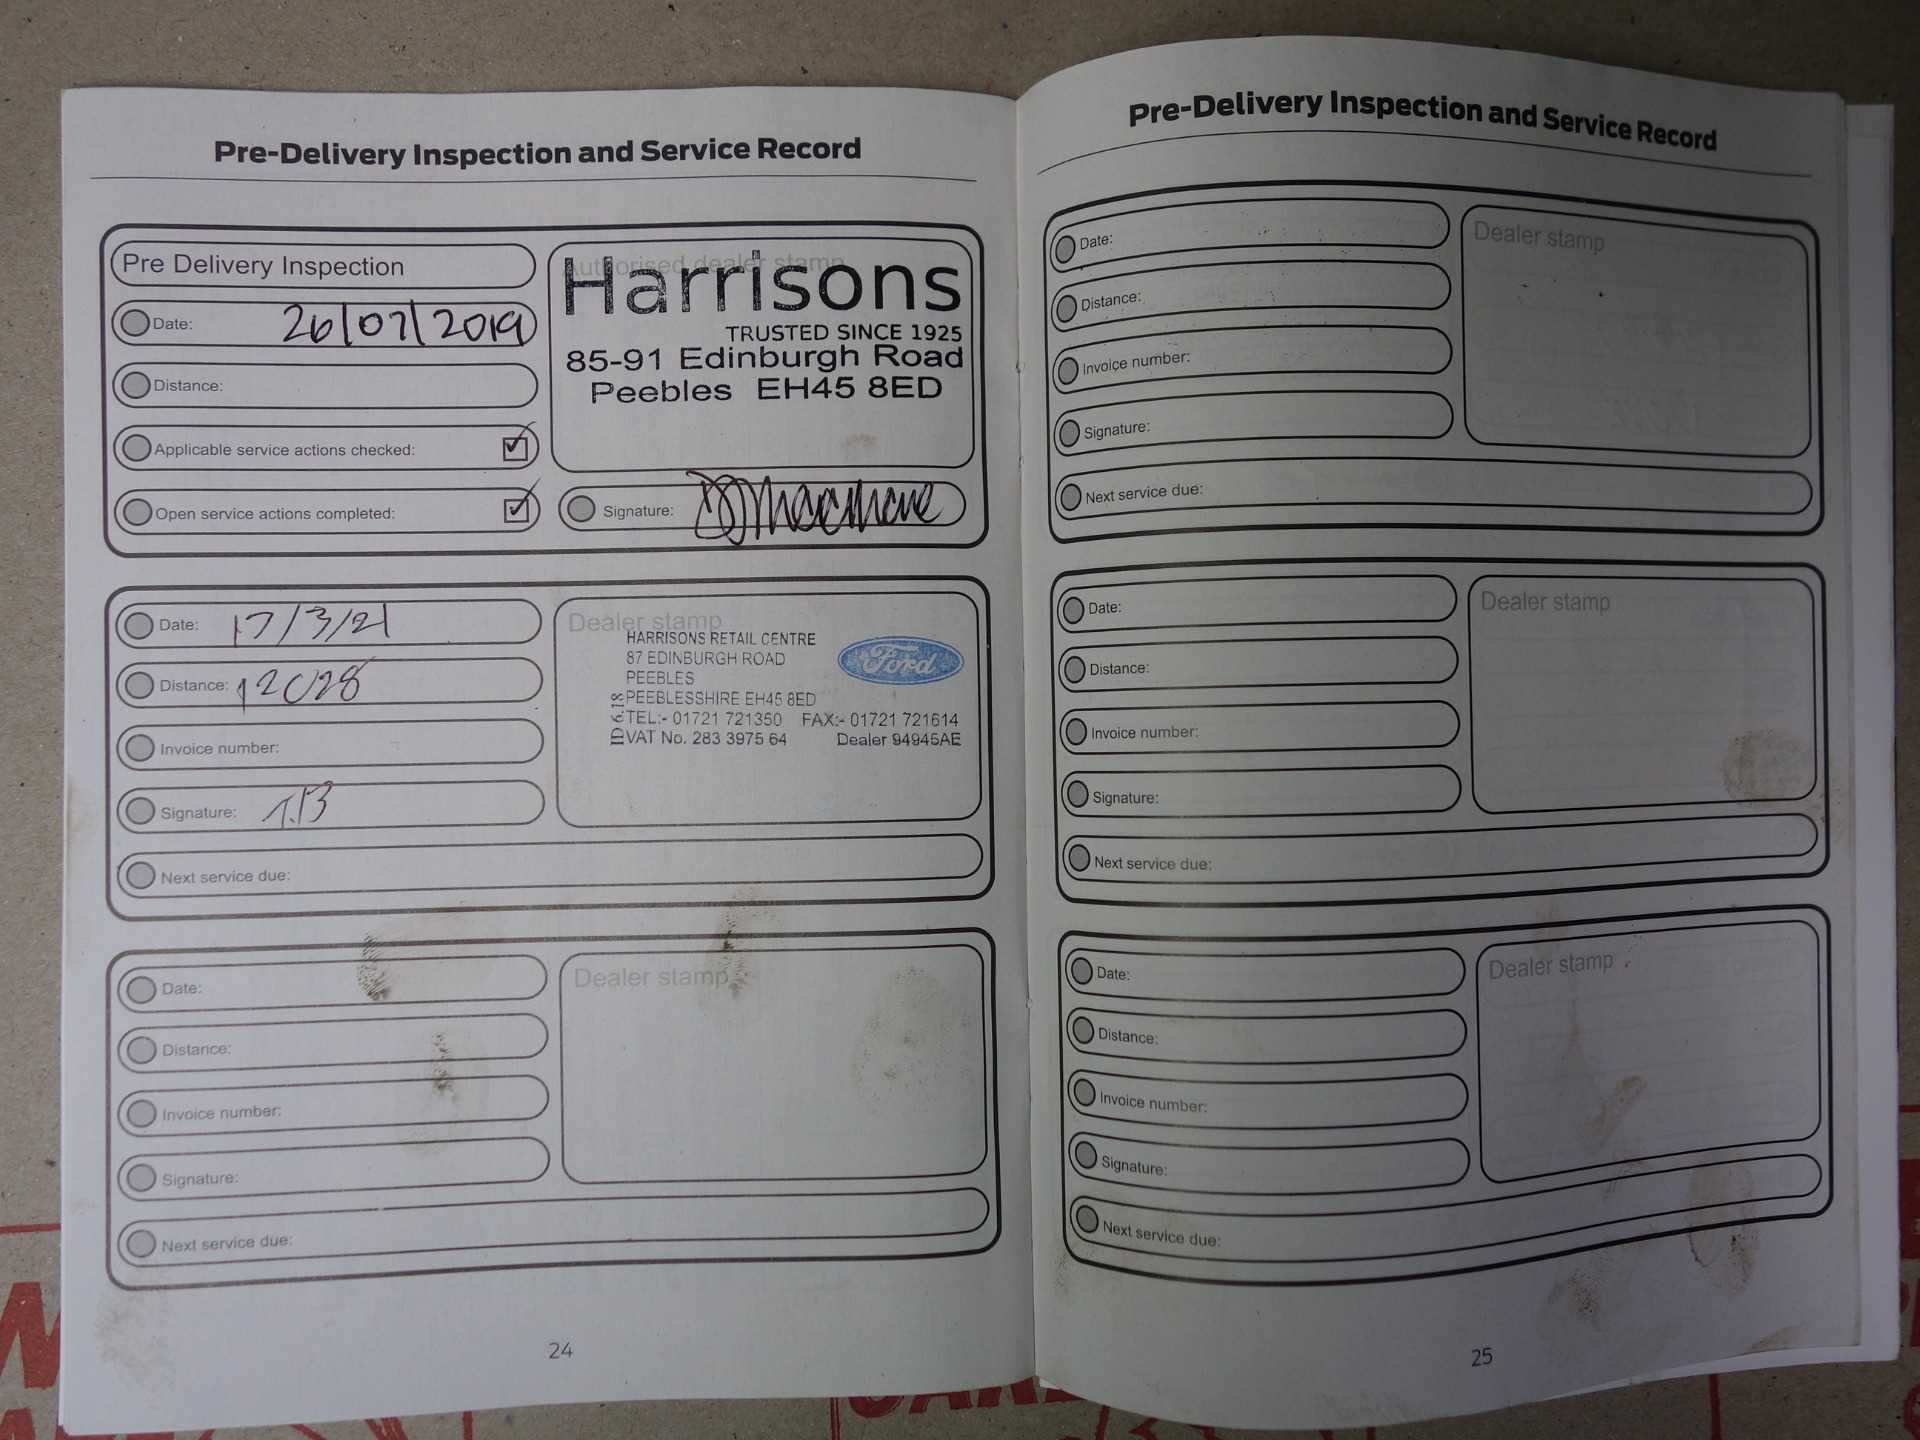 Pre-Delivery Inspection and Service Record
Pre Delivery Inspection
Date: 26/07/2019
Distance:
Applicable service actions checked:
Open service actions completed:
Authorised dealer stamp
Harrisons
TRUSTED SINCE 1925
85-91 Edinburgh Road
Peebles EH45 8ED
Signature:
Date: 17/3/21
Distance: 12028
Invoice number:
Signature: T.B
Next service due:
Dealer stamp
HARRISONS RETAIL CENTRE
87 EDINBURGH ROAD
PEEBLES
PEEBLESSHIRE EH45 8ED
TEL:- 01721 721350 FAX:- 01721 721614
VAT No. 283 3975 64 Dealer 94945AE
Ford
Date:
Distance:
Invoice number:
Signature:
Next service due:
Dealer stamp
24
Pre-Delivery Inspection and Service Record
Date:
Distance:
Invoice number:
Signature:
Next service due:
Dealer stamp
Date:
Distance:
Invoice number:
Signature:
Next service due:
Dealer stamp
Date:
Distance:
Invoice number:
Signature:
Next service due:
Dealer stamp
25